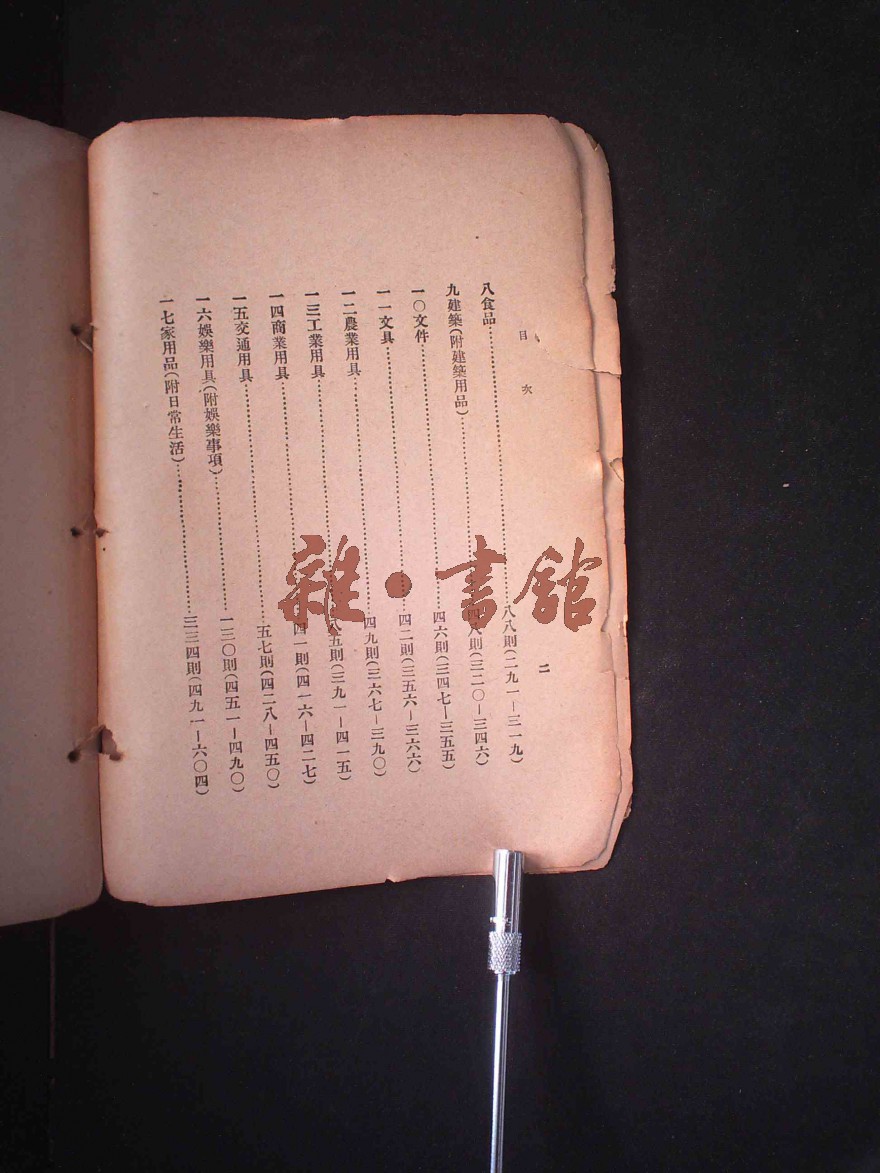 目次
二
八食品……八八則(二九一—三一九)
九建築(附建築用品)……四八則(三二〇—三四六)
一〇文件……四六則(三四七—三五五)
一一文具……四二則(三五六—三六六)
一二農業用具……四九則(三六七—三九〇)
一三工業用具……八五則(三九一—四一五)
一四商業用具……四一則(四一六—四二七)
一五交通用具……五七則(四二八—四五〇)
一六娛樂用具(附娛樂事項)……一三〇則(四五一—四九〇)
一七家用品(附日常生活)……三三四則(四九一—六〇四)
雜·書館